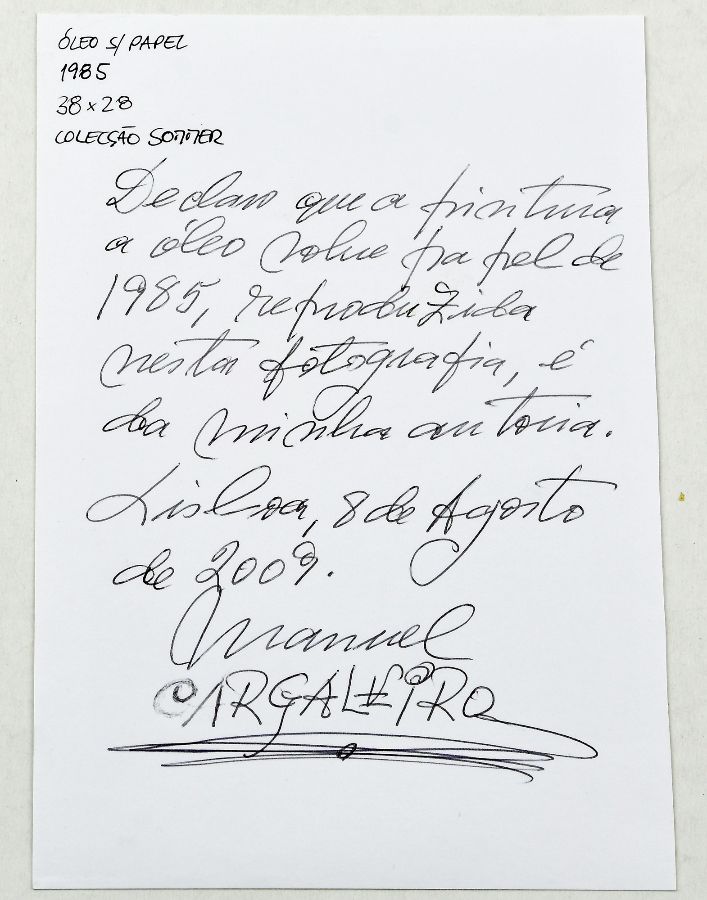 ÓLEO S/ PAPEL
1985
38 x 28
COLECÇÃO SOMMER
Declaro que a pintura
a óleo sobre papel de
1985, reproduzida
nesta fotografia, é
da minha autoria.
Lisboa, 8 de Agosto
de 2009.
Manuel
CARGALEIRO